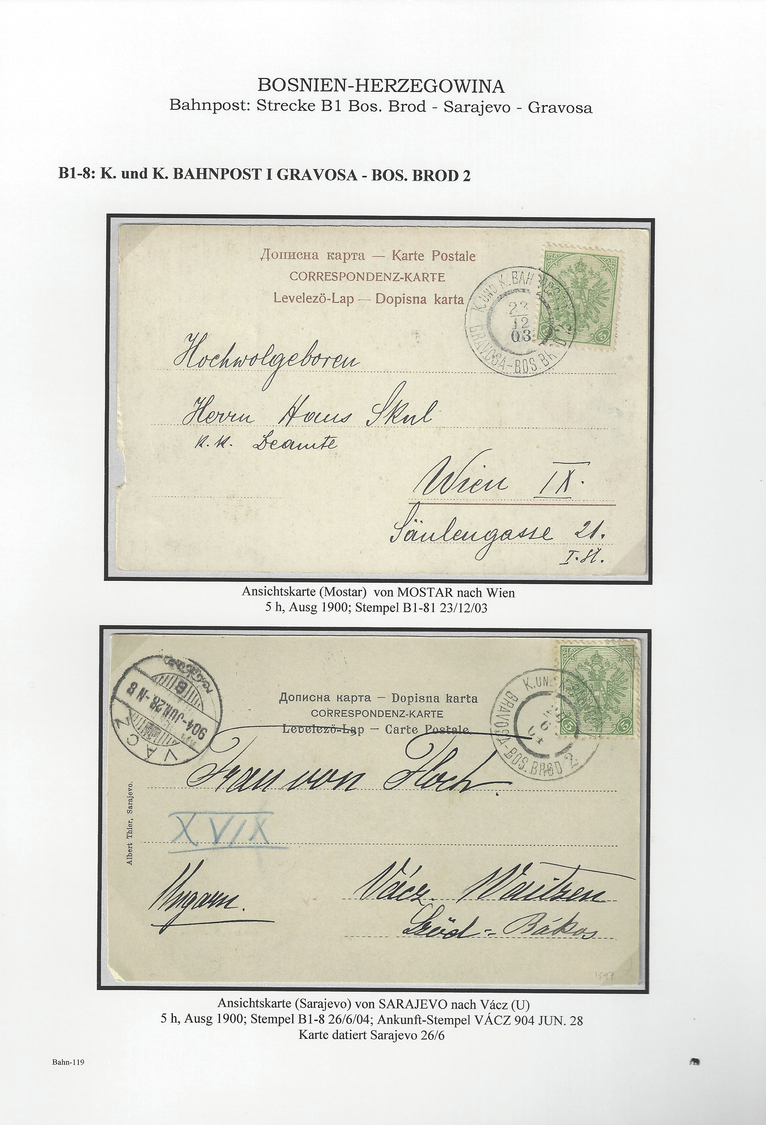 BOSNIEN-HERZEGOWINA
Bahnpost: Strecke B1 Bos. Brod - Sarajevo - Gravosa
B1-8: K. und K. BAHNPOST I GRAVOSA - BOS. BROD 2
Дописна карта — Karte Postale
CORRESPONDENZ-KARTE
Levelező-Lap — Dopisna karta
K. UND K. BAH
23
12
03
GRAVOSA-BOS. BR
5
Hochwolgeboren
Herrn Hans Skul
k. k. Beamte
Wien IX.
Säulengasse 21.
I. St.
Ansichtskarte (Mostar) von MOSTAR nach Wien
5 h, Ausg 1900; Stempel B1-81 23/12/03
Дописна карта – Dopisna karta
CORRESPONDENZ-KARTE
Levelező-Lap – Carte Postale.
VÁCZ
904-JUN.28-N 8
K. UND
GRAVOSA-BOS. BROD 2
5 5
Frau von Floch.
XVIX
Albert Thier, Sarajevo.
Ungarn.
Vácz. Waitzen
Göd - Bákos
Ansichtskarte (Sarajevo) von SARAJEVO nach Vácz (U)
5 h, Ausg 1900; Stempel B1-8 26/6/04; Ankunft-Stempel VÁCZ 904 JUN. 28
Karte datiert Sarajevo 26/6
Bahn-119